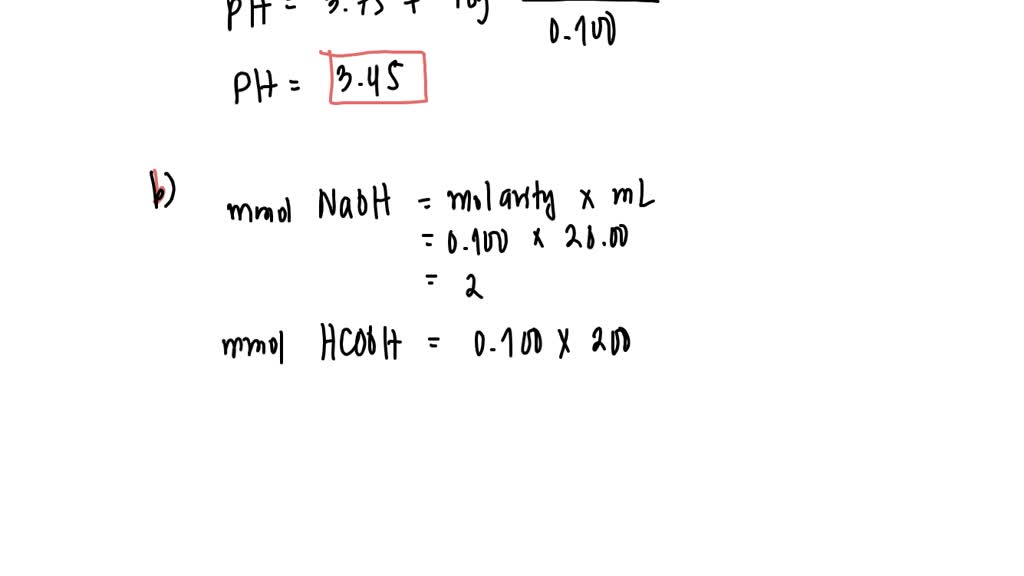 PH = 3.75 + log
0.100
PH = 3.45
b)
mmol NaOH = molarity x mL
= 0.100 x 20.00
= 2
mmol HCOOH = 0.100 x 200